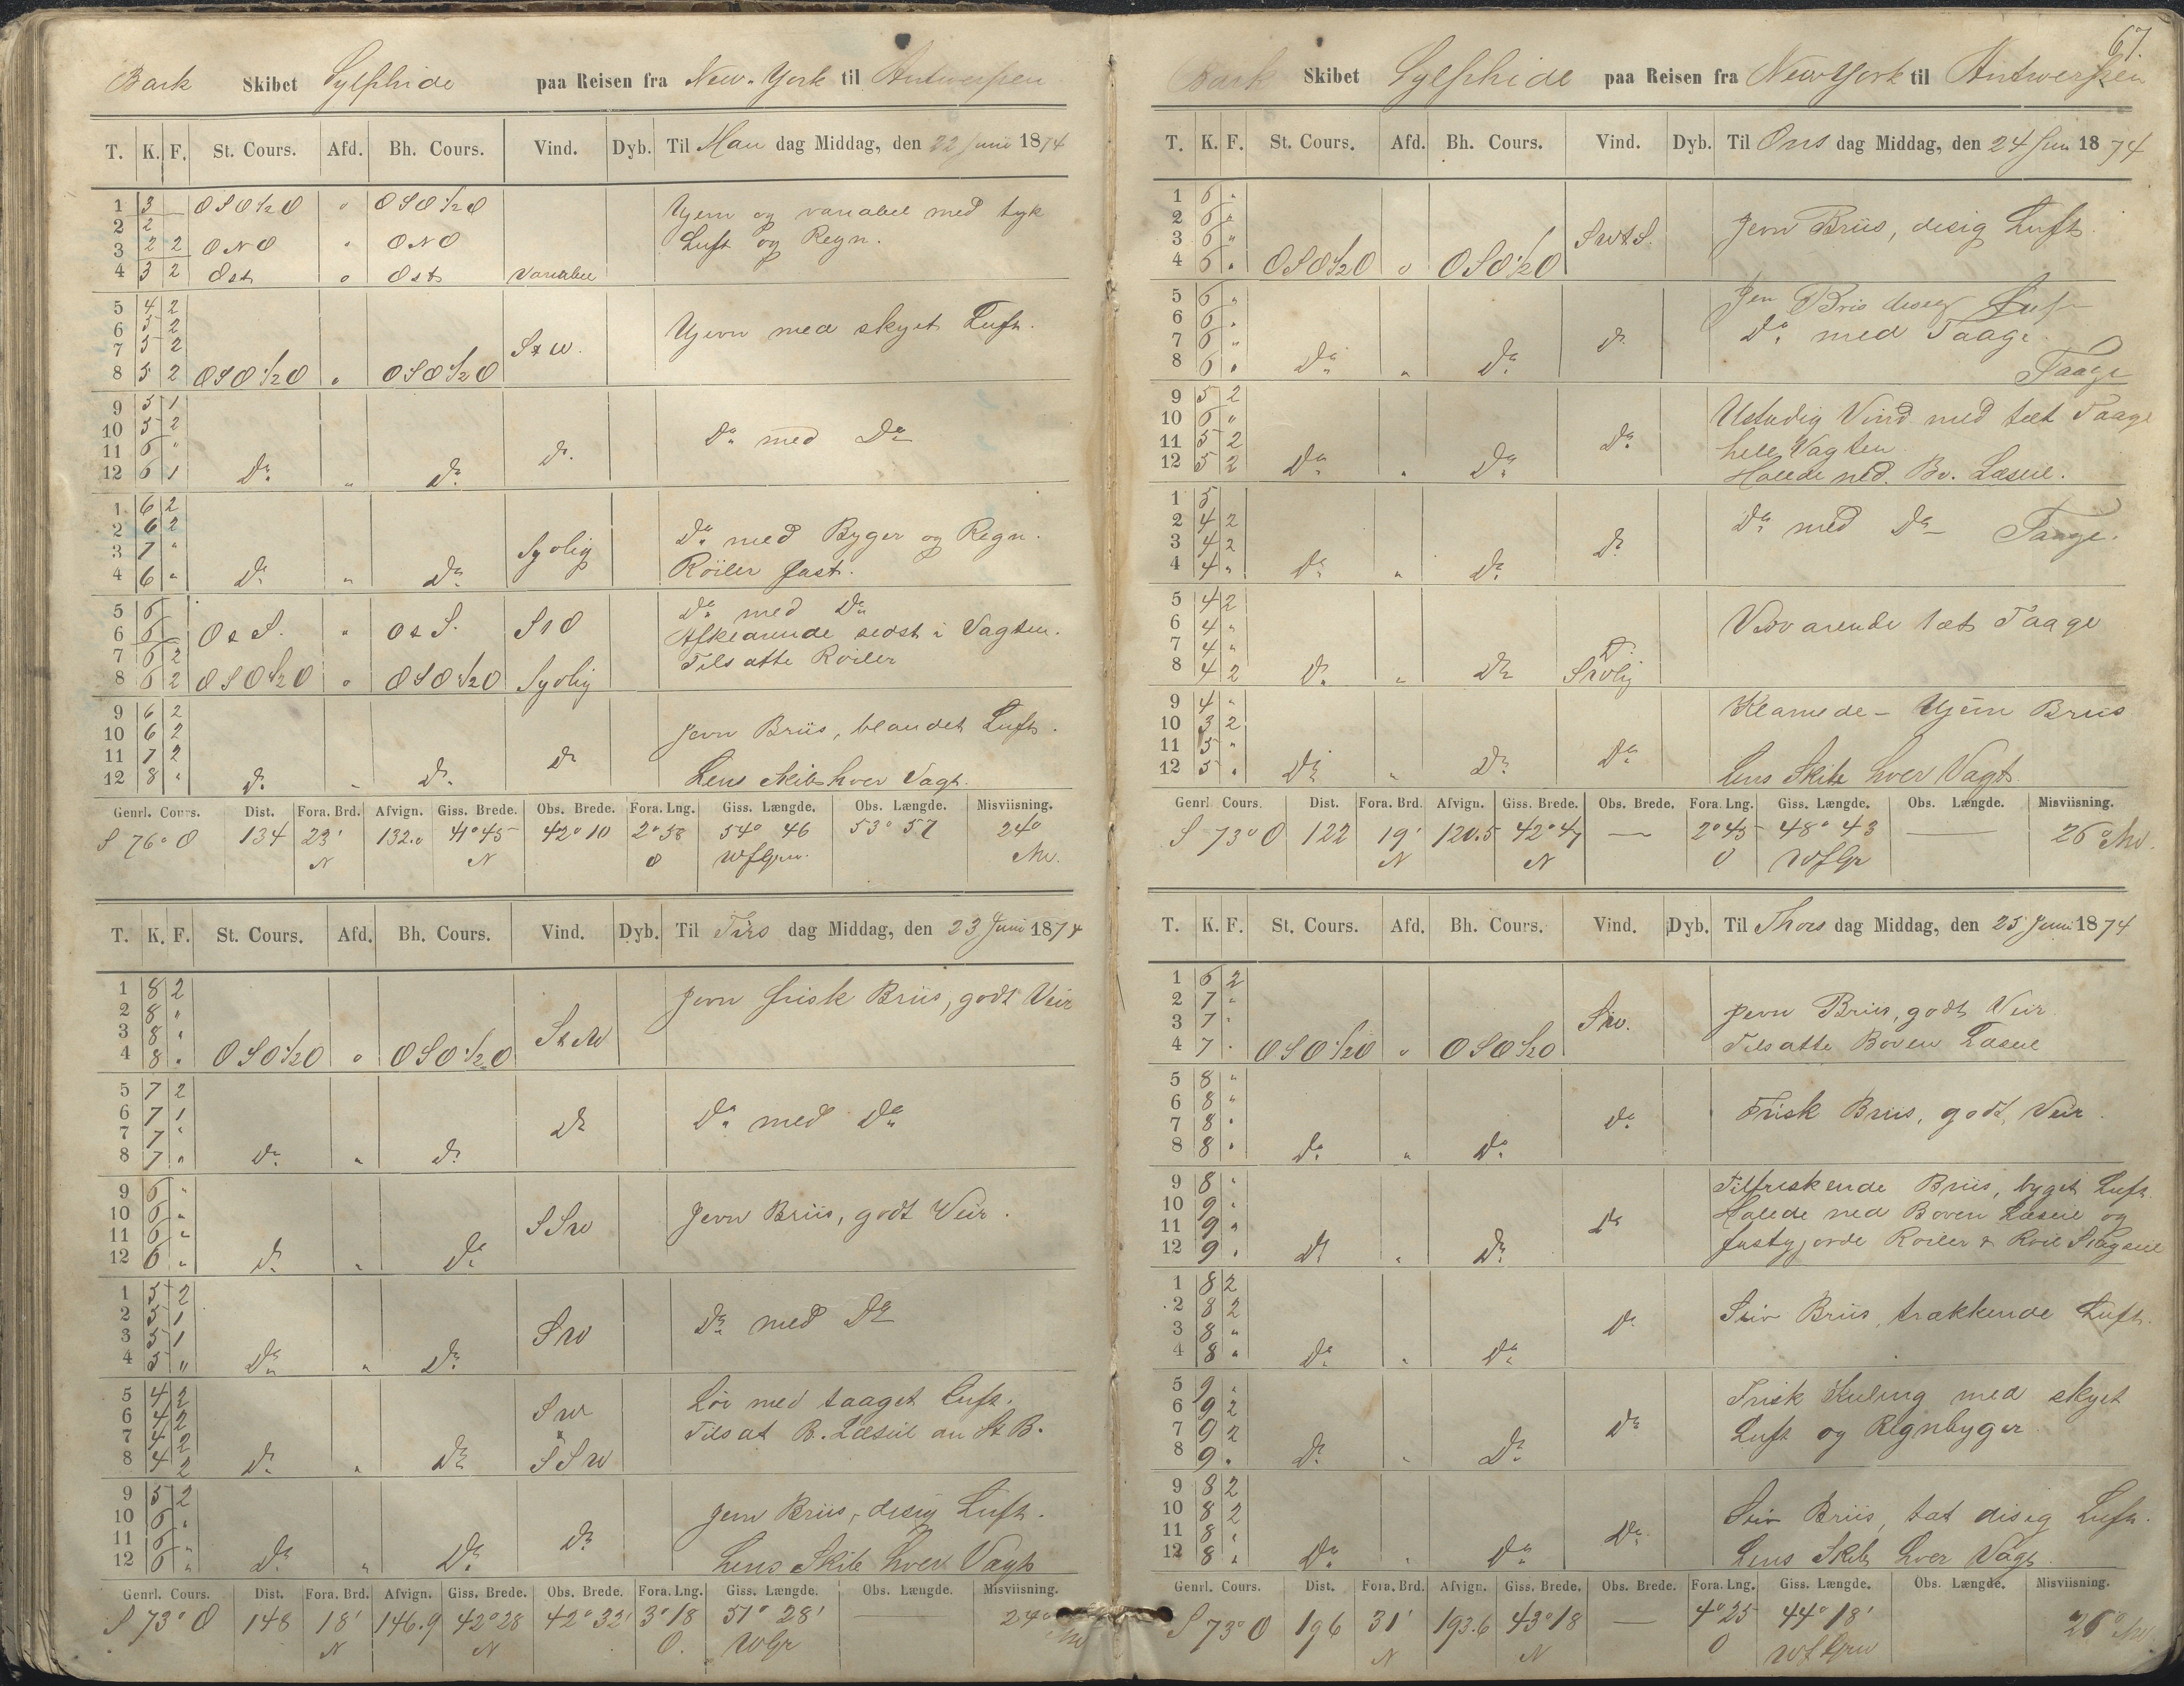 Bark Skibet Sylphide paa Reisen fra New-York til Antwerpen
T. K. F. St. Cours. Afd. Bh. Cours. Vind. Dyb. Til Man dag Middag, den 22 Juni 1874
1 3 — OSO½O " OSO½O Ujevn og variabel med tyk
2 2 Luft og Regn.
3 2 2 ONO " ONO
4 3 2 Ost " Ost Variabel
5 4 2
6 5 2 Ujevn med skyet Luft.
7 5 2 StW.
8 5 2 OSO½O " OSO½O
9 5 1
10 5 2 Do med Do
11 6 " Do
12 6 1 Do " Do
1 6 2
2 6 2 Do med Byger og Regn.
3 7 " Sydlig
4 6 " Do " Do Röiler fast.
5 6 Do med Do
6 6 OtS. " OtS. StO Afklarende sidst i Vagten.
7 6 2 Tilsatte Röiler
8 6 2 OSO½O " OSO½O Sydlig
9 6 2
10 6 2 Jevn Briis, blandet Luft.
11 7 2 Do
12 8 " Do " Do Lens Skib hver Vagt.
Genrl. Cours. Dist. Fora. Brd. Afvign. Giss. Brede. Obs. Brede. Fora. Lng. Giss. Længde. Obs. Længde. Misviisning.
S 76° O 134 23' 132.0 41°45 42°10 2°58 54° 46 53° 57 24°
N N O WfGrw. NW.
T. K. F. St. Cours. Afd. Bh. Cours. Vind. Dyb. Til Tirs dag Middag, den 23 Juni 1874
1 8 2 Jevn frisk Briis, godt Veir
2 8 "
3 8 "
4 8 " OSO½O " OSO½O
5 7 2
6 7 1 Do Do med Do
7 7 "
8 7 " Do " Do
9 6 "
10 6 " Jevn Briis, godt Veir.
11 6 " SSW
12 6 " Do " Do
1 5 2
2 5 1 Do med Do
3 5 1 SW
4 5 " Do " Do
5 4 2 Löi med taaget Luft.
6 4 2 SW Tilsat B. Læseil an St B.
7 4 2
8 4 2 Do " Do SSW
9 5 2
10 6 " Jevn Briis, disig Luft.
11 6 " Do
12 6 " Do " Do Lens Skib hver Vagt
Genrl. Cours. Dist. Fora. Brd. Afvign. Giss. Brede. Obs. Brede. Fora. Lng. Giss. Længde. Obs. Længde. Misviisning.
S 73° O 148 18' 146.9 42°28 42°32' 3°18 51° 28' — 24°
N N O. WGr NW
67.
Bark Skibet Sylphide paa Reisen fra New York til Antwerpen
T. K. F. St. Cours. Afd. Bh. Cours. Vind. Dyb. Til Ons dag Middag, den 24 Jun 1874
1 6 "
2 6 " Jevn Briis, disig Luft.
3 6 " SWtS.
4 6 " OSO½O " OSO½O
5 6 " Jevn Bris disig Luft
6 6 " Do med Taage
7 6 " Do
8 6 " Do " Do Taage
9 5 2 Ustadig Vind med tæt Taage
10 6 " hele Vagten
11 5 2 Do
12 5 2 Do " Do Halede ned Bv. Læseil.
1 5
2 4 2 Do med Do Taage.
3 4 2 Do
4 4 " Do " Do
5 4 2
6 4 " Vedvarende tæt Taage
7 4 " Do
8 4 2 Do " Do
9 4 " Klarnede - Ujevn Briis
10 3 2
11 5 " Do
12 5 " Do " Do Lens Skib hver Vagt.
Genrl Cours. Dist. Fora. Brd. Afvign. Giss. Brede. Obs. Brede. Fora. Lng. Giss. Længde. Obs. Længde. Misviisning.
S 73° O 122 19' 120.5 42°47 — 2°45 48° 43 — 26° NW.
N N O WfGr
T. K. F. St. Cours. Afd. Bh. Cours. Vind. Dyb. Til Thors dag Middag, den 25 Juni 1874
1 6 2
2 7 " Jevn Briis, godt Veir
3 7 " SW.
4 7 " OSO½O " OSO½O Tilsatte Boven Læseil
5 8 "
6 8 " Frisk Briis, godt Veir.
7 8 " Do
8 8 " Do " Do
9 8 " Tilfriskende Briis, byget Luft.
10 9 " Halede ned Boven Læseil og
11 9 " Do
12 9 " Do " Do fastgjorde Roiler & Roil Stagseil
1 8 2
2 8 2 Stiv Briis, trækkende Luft.
3 8 " Do
4 8 " Do " Do
5 9 " Frisk Kuling med skyet
6 9 2
7 9 2 Do Luft og Regnbyger
8 9 " Do " Do
9 8 2
10 8 2 Stiv Briis, tæt disig Luft.
11 8 " Do
12 8 " Do " Do Lens Skib hver Vagt
Genrl. Cours. Dist. Fora. Brd. Afvign. Giss. Brede. Obs. Brede. Fora. Lng. Giss. Længde. Obs. Længde. Misviisning.
S 73° O 196 31' 193.6 43°18 — 4°25 44° 18' 26° NW
N N O WfGrw